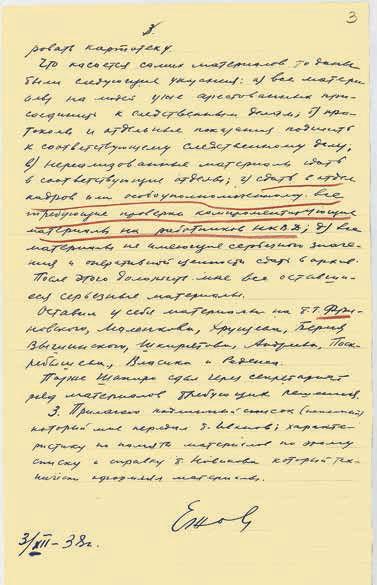 3.
3
ровать картотеку.
Что касается самих материалов то даны
были следующие указания: а) все матери
алы на людей уже арестованных при-
соединить к следственным делам; б) про-
токолы и отдельные показания подшить
к соответствующему следственному делу;
в) нереализованные материалы сдать
в соответствующие отделы; г) сдать в отдел
кадров или особоуполномоченному все
требующие проверки компрометирующие
материалы на работников НКВД; д) все
материалы не имеющие серьезного значе-
ния и оперативной ценности сдать в архив.
После этого доложить мне все оставши-
еся серьезные материалы.
Оставил у себя материалы на т.т. Фри-
новского, Маленкова, Хрущева, Берия
Вышинского, Шкирятова, Андреева, Пос-
кребышева, Власика и Реденса.
Позже Шапиро сдал через секретариат
ряд материалов требующих решения.
3. Прилагаю подлинный список
который мне передал т. ; характе-
ристику по памяти материалов по этому
списку и справку т. Новикова который тех-
нически оформлял материалы.
Ежов
3/XII-38г.